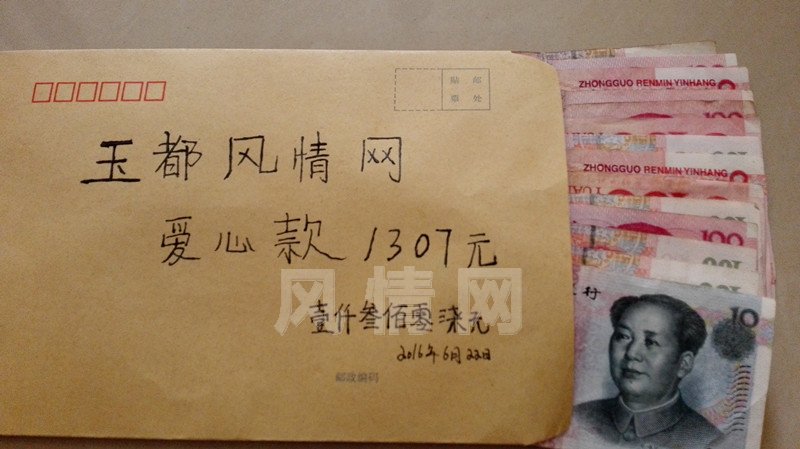 贴 邮
票 处
玉都风情网
爱心款 1307元
风情网
壹仟叁佰零柒元
2016年6月22日
邮政编码
ZHONGGUO RENMIN YINHANG
100
ZHONGGUO RENMIN YINHANG
YUAN
100
100
行
10